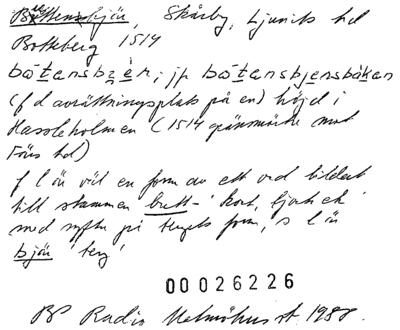 Bottensbjön, Skårby, Ljunits hd
Bottberg 1514
båtansbjèr; jp båtansbjensbakan
(f d avrättningsplats på en) höjd i
Hassleholmen (1514 gränsmärke mot
Färs hd)
f l är väl en form av ett ord bildat
till stammen butt- 'kort,
med syftn på bergets form, s l är
bjär 'berg'
00026226
BP Radio Malmöhus st. 1988.